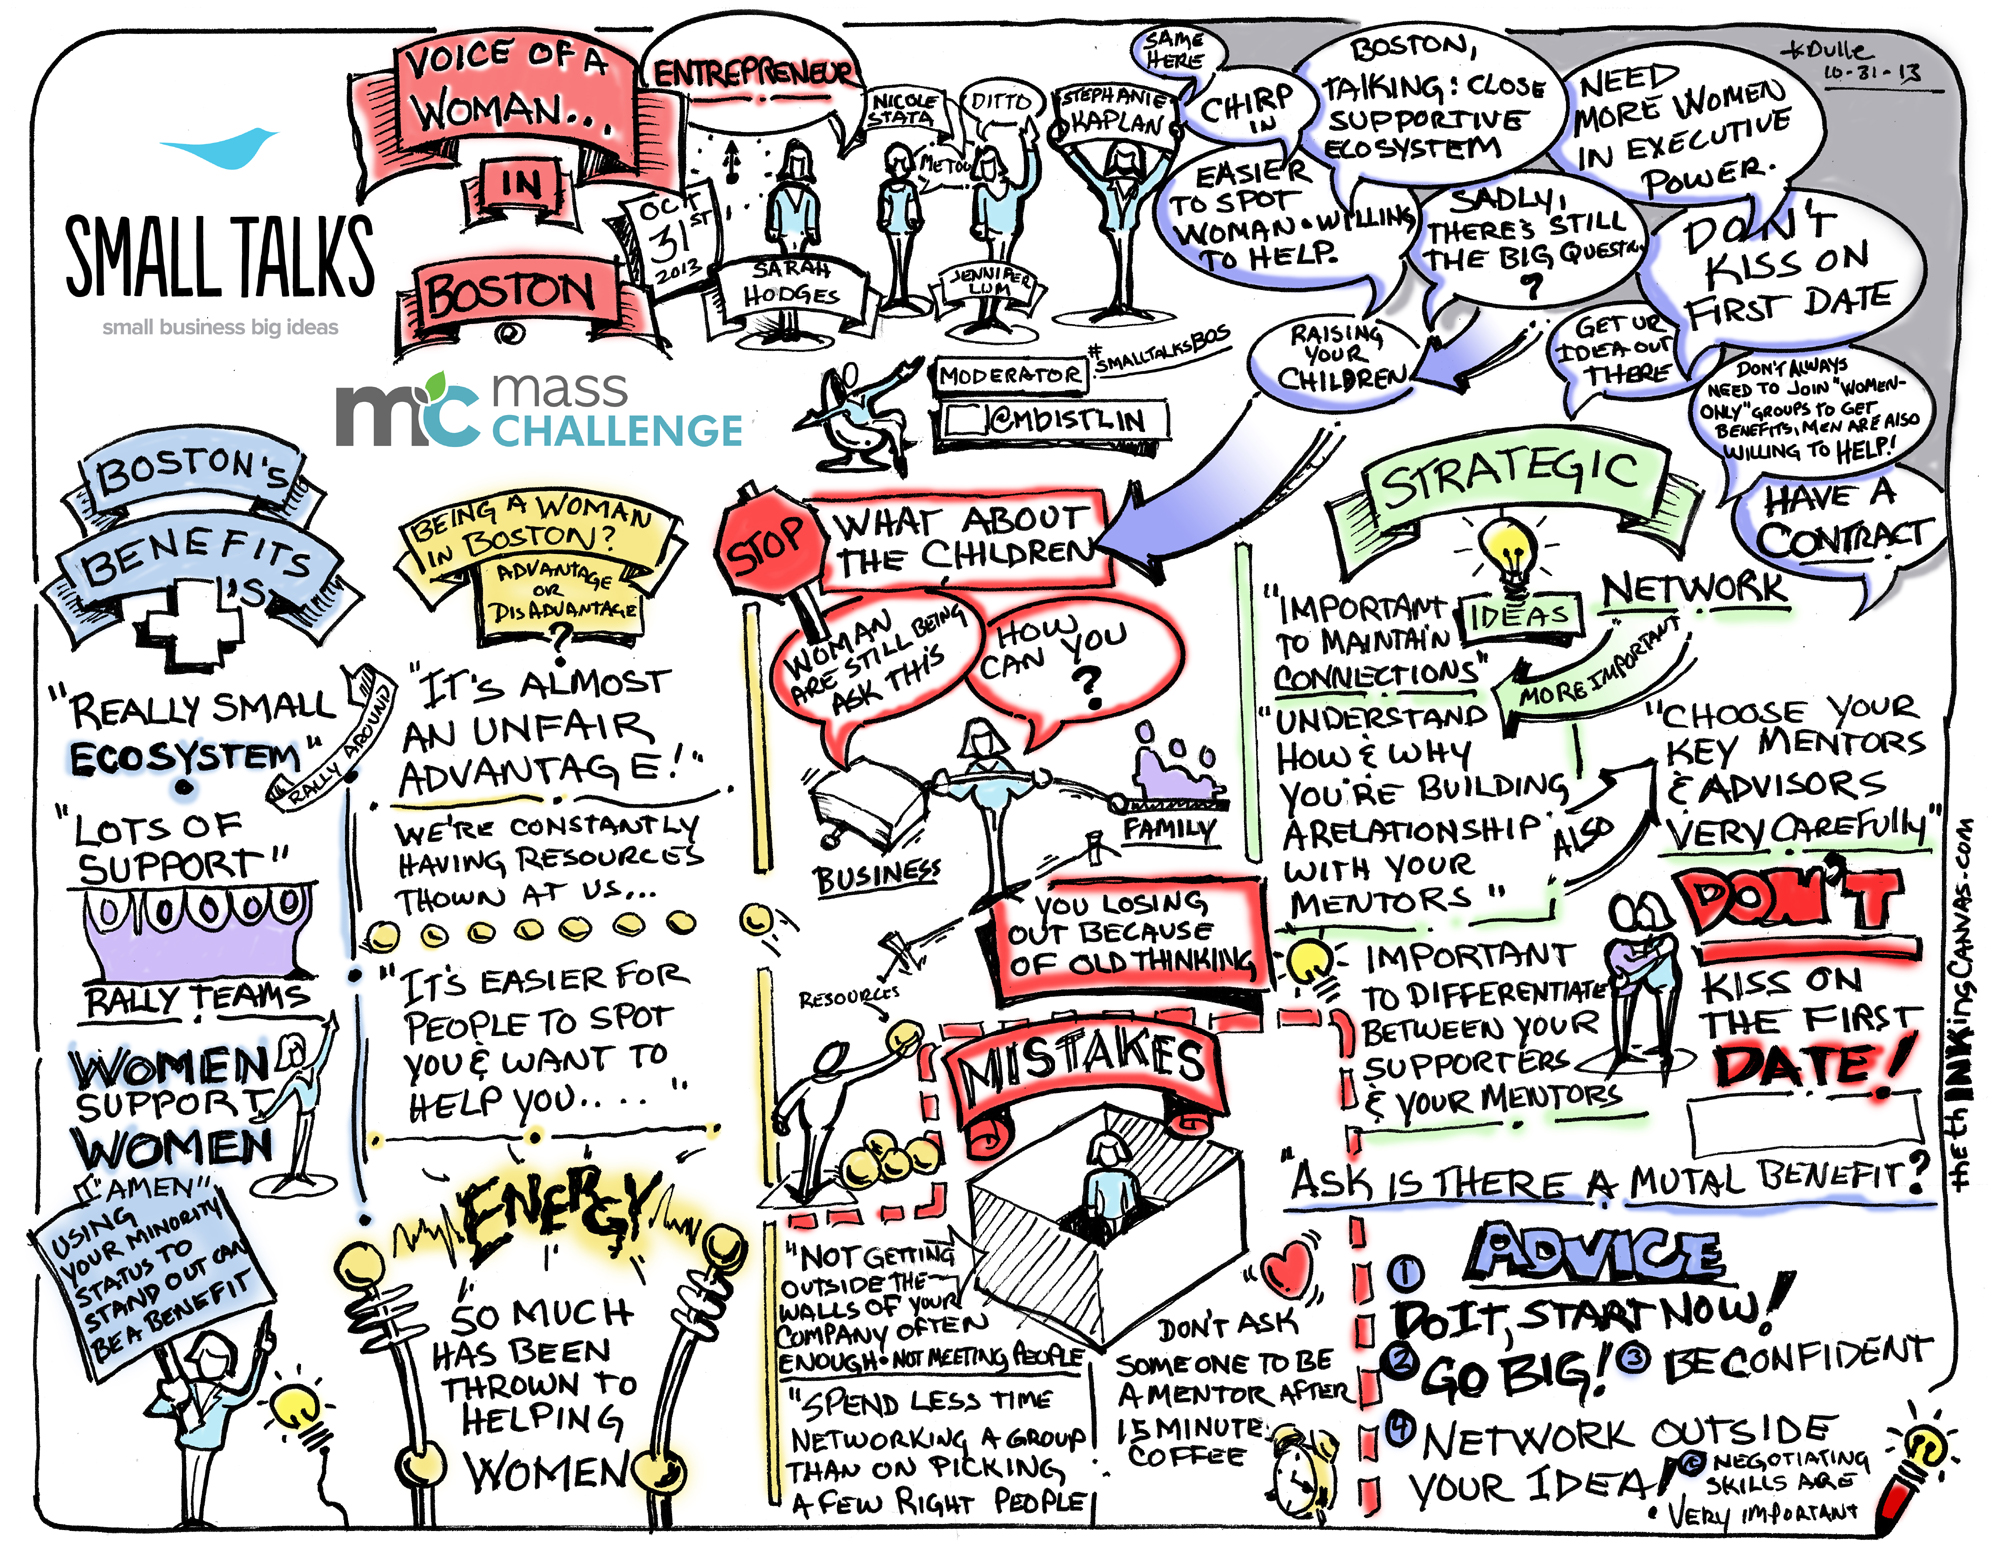 VOICE OF A
WOMAN...
IN
BOSTON
@
ENTREPRENEUR
OCT
31ST
2013
SARAH
HODGES
NICOLE
STATA
ME TOO
DITTO
JENNIFER
LUM
STEPHANIE
KAPLAN
SAME
HERE
CHIRP
IN
BOSTON,
TALKING: CLOSE
SUPPORTIVE
ECOSYSTEM
NEED
MORE WOMEN
IN EXECUTIVE
POWER.
KDulle
10-31-13
EASIER
TO SPOT
WOMAN • WILLING
TO HELP.
SADLY,
THERE'S STILL
THE BIG QUESTN.
?
DON'T
KISS ON
FIRST DATE
RAISING
YOUR
CHILDREN
GET UR
IDEA OUT
THERE
DON'T ALWAYS
NEED TO JOIN "WOMEN-
ONLY" GROUPS TO GET
BENEFITS, MEN ARE ALSO
WILLING TO HELP!
HAVE A
CONTRACT
SMALL TALKS
small business big ideas
mc mass
CHALLENGE
MODERATOR
@MBISTLIN
#SMALLTALKSBOS
BOSTON'S
BENEFITS
'S
"REALLY SMALL
ECOSYSTEM"
RALLY AROUND
"LOTS OF
SUPPORT"
RALLY TEAMS
WOMEN
SUPPORT
WOMEN
"AMEN"
USING
YOUR MINORITY
STATUS TO
STAND OUT CAN
BE A BENEFIT
BEING A WOMAN
IN BOSTON?
ADVANTAGE
OR
DISADVANTAGE
?
"IT'S ALMOST
AN UNFAIR
ADVANTAGE!"
WE'RE CONSTANTLY
HAVING RESOURCES
THOWN AT US...
"IT'S EASIER FOR
PEOPLE TO SPOT
YOU & WANT TO
HELP YOU....."
ENERGY
SO MUCH
HAS BEEN
THROWN TO
HELPING
WOMEN
STOP
WHAT ABOUT
THE CHILDREN
WOMAN
ARE STILL BEING
ASK THIS
HOW
CAN YOU
?
BUSINESS
FAMILY
YOU LOSING
OUT BECAUSE
OF OLD THINKING
RESOURCES
MISTAKES
"NOT GETTING
OUTSIDE THE
WALLS OF YOUR
COMPANY OFTEN
ENOUGH • NOT MEETING PEOPLE
"SPEND LESS TIME
NETWORKING A GROUP
THAN ON PICKING
A FEW RIGHT PEOPLE
DON'T ASK
SOMEONE TO BE
A MENTOR AFTER
15 MINUTE
COFFEE
STRATEGIC
IDEAS
NETWORK
"IMPORTANT
TO MAINTAIN
CONNECTIONS"
MORE IMPORTANT
"UNDERSTAND
HOW & WHY
YOU'RE BUILDING
A RELATIONSHIP
WITH YOUR
MENTORS"
ALSO
"CHOOSE YOUR
KEY MENTORS
& ADVISORS
VERY CAREFULLY"
IMPORTANT
TO DIFFERENTIATE
BETWEEN YOUR
SUPPORTERS
& YOUR MENTORS
DON'T
KISS ON
THE FIRST
DATE!
"ASK IS THERE A MUTAL BENEFIT?
ADVICE
1 DO IT, START NOW!
2 GO BIG! 3 BE CONFIDENT
4 NETWORK OUTSIDE
YOUR IDEA!
NEGOTIATING
SKILLS ARE
• VERY IMPORTANT
thethINKingCANVAS.com